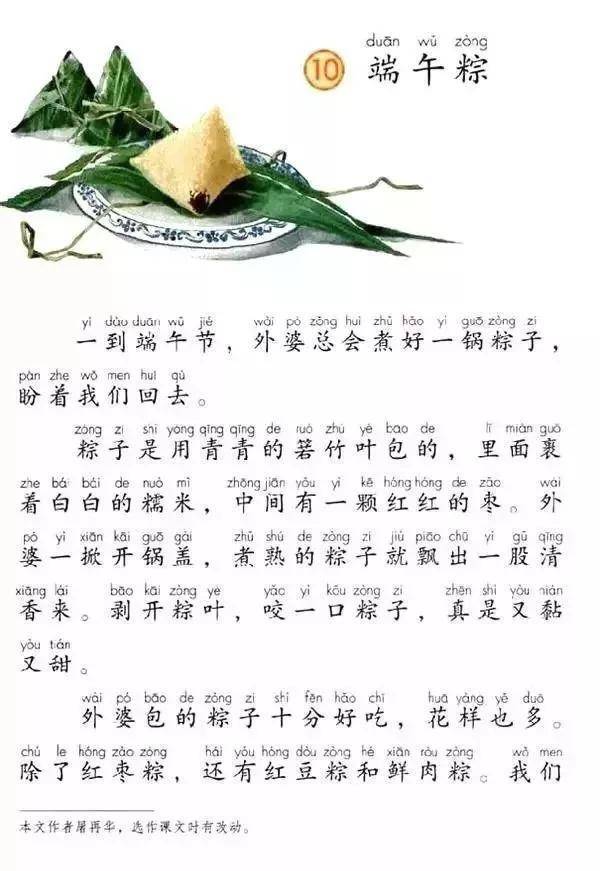 duān wǔ zòng
10 端午粽
yí dào duān wǔ jié wài pó zǒng huì zhǔ hǎo yì guō zòng zi
一到端午节，外婆总会煮好一锅粽子，
pàn zhe wǒ men huí qù
盼着我们回去。
zòng zi shì yòng qīng qīng de ruò zhú yè bāo de lǐ miàn guǒ
粽子是用青青的箬竹叶包的，里面裹
zhe bái bái de nuò mǐ zhōng jiān yǒu yì kē hóng hóng de zǎo wài
着白白的糯米，中间有一颗红红的枣。外
pó yì xiān kāi guō gài zhǔ shú de zòng zi jiù piāo chū yì gǔ qīng
婆一掀开锅盖，煮熟的粽子就飘出一股清
xiāng lái bāo kāi zòng yè yǎo yì kǒu zòng zi zhēn shì yòu nián
香来。剥开粽叶，咬一口粽子，真是又黏
yòu tián
又甜。
wài pó bāo de zòng zi shí fēn hǎo chī huā yàng yě duō
外婆包的粽子十分好吃，花样也多。
chú le hóng zǎo zòng hái yǒu hóng dòu zòng hé xiān ròu zòng wǒ men
除了红枣粽，还有红豆粽和鲜肉粽。我们
本文作者屠再华，选作课文时有改动。